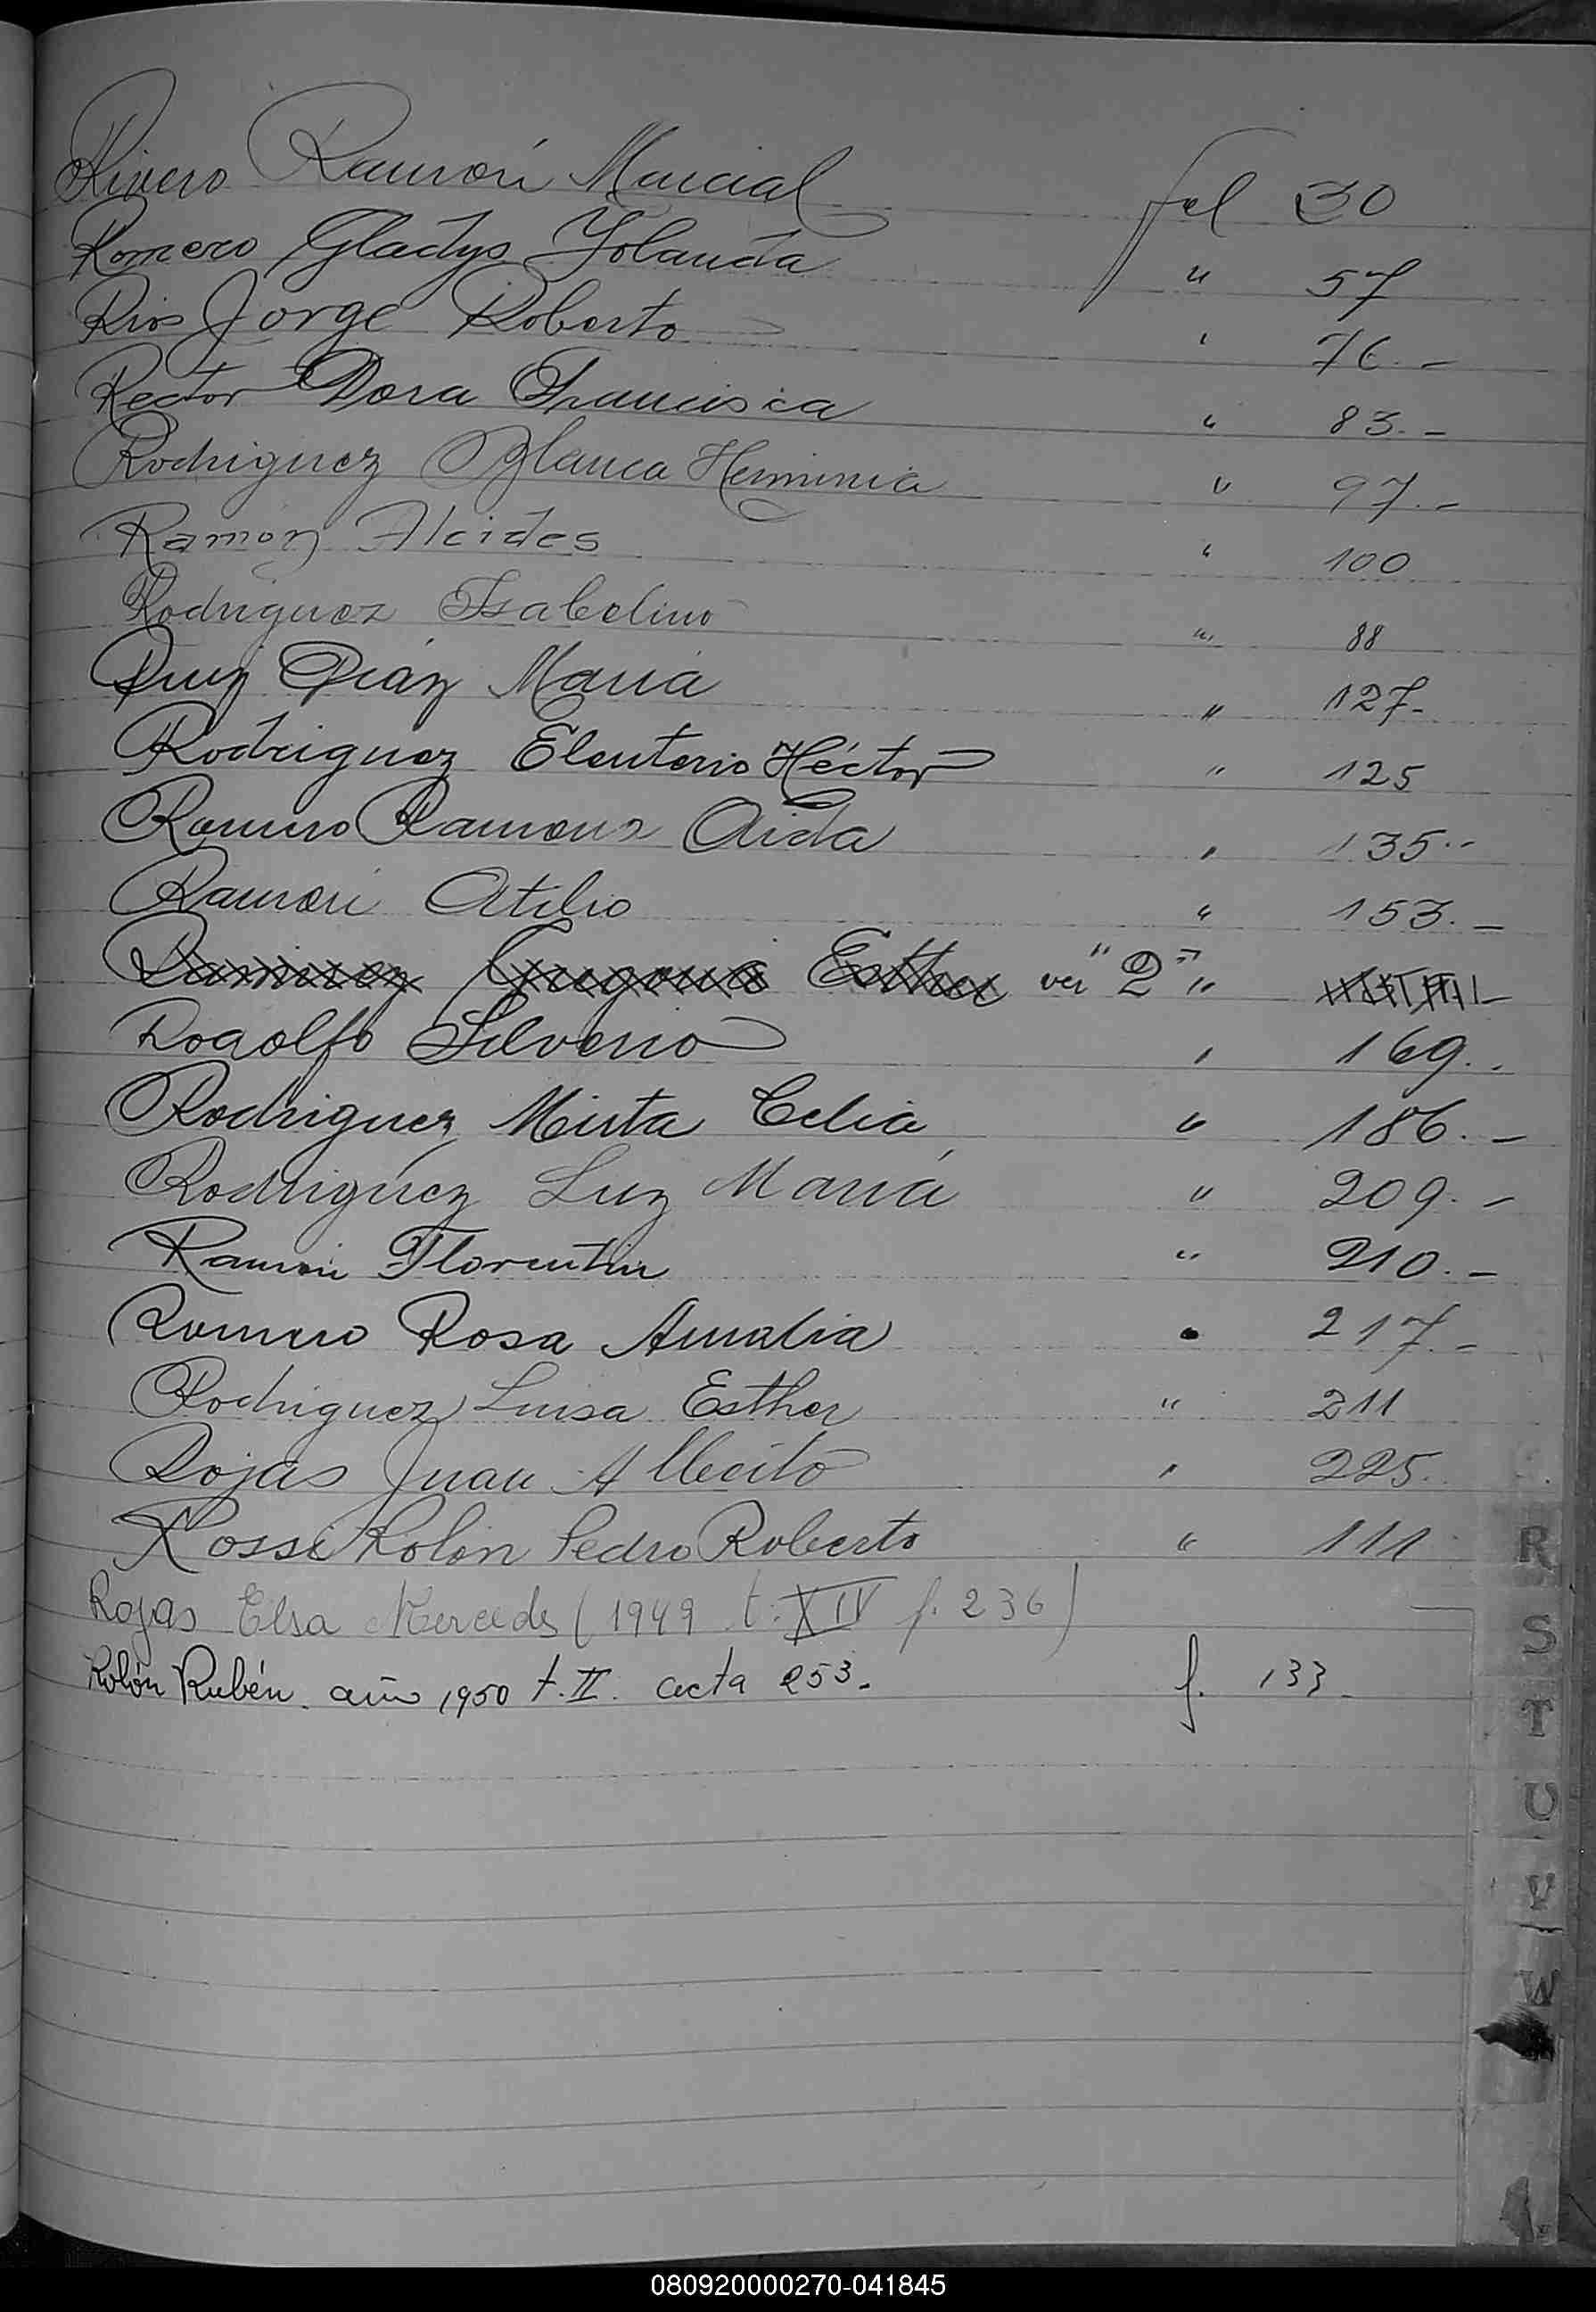 Rivero Ramón Marcial fol 30
Romero Gladys Yolanda " 57
Rios Jorge Roberto " 76.-
Rector Dora Francisca " 83.-
Rodriguez Blanca Herminia " 97.-
Ramón Alcides " 100
Rodriguez Isabelino " 88
Ruiz Diaz Maria " 127-
Rodriguez Eleuterio Héctor " 125
Romero Ramona Aida " 135.-
Ramón Atilio " 153.-
Ramirez Gregoria Esther ver "2" "
Rodolfo Silverio " 169..
Rodriguez Mirta Celia " 186.-
Rodriguez Luz Maria " 209.-
Ramón Florentin " 210.-
Romero Rosa Amalia " 217.-
Rodriguez Luisa Esther " 211
Rojas Juan Alberto " 225.
Rossi Rolón Pedro Roberto " 111
Rojas Elsa Mercedes (1949 t. XIV f. 236)
Rolón Rubén. año 1950 t. II. acta 253. f. 133-
R
S
T
U
V
W
080920000270-041845